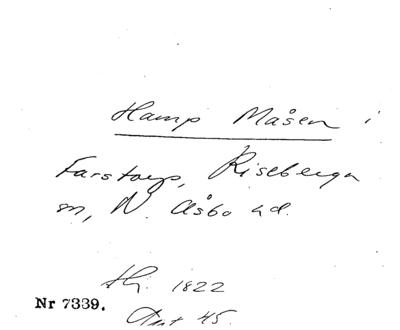 Hamp Måsen i
Farstorp, Riseberga
sn, N. Åsbo hd.
1822
Nr 7339.
Ant 45.